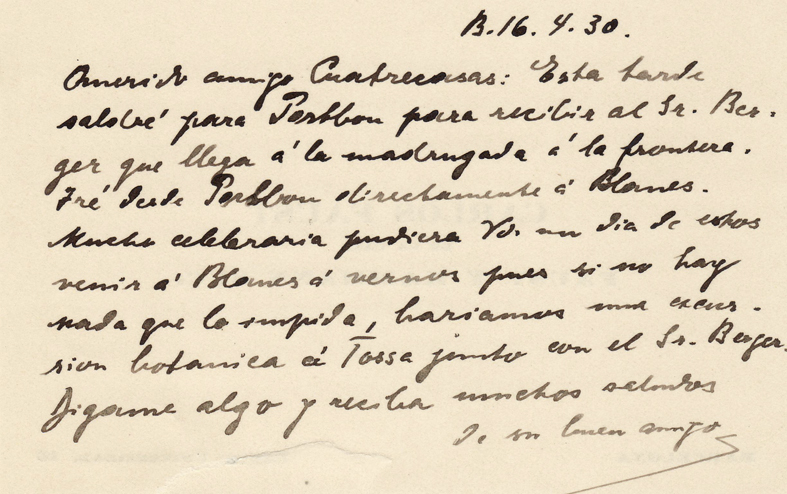 B. 16. 4. 30.
Querido amigo Cuatrecasas: Esta tarde
saldré para Portbou para recibir al Sr. Ber-
ger que llega á la madrugada á la frontera.
Iré desde Portbou directamente á Blanes.
Mucho celebraria pudiera Vd. un dia de estos
venir á Blanes á vernos pues si no hay
nada que lo impida, hariamos una excur-
sion botanica á Tossa junto con el Sr. Berger.
Digame algo y reciba muchos saludos
de su buen amigo